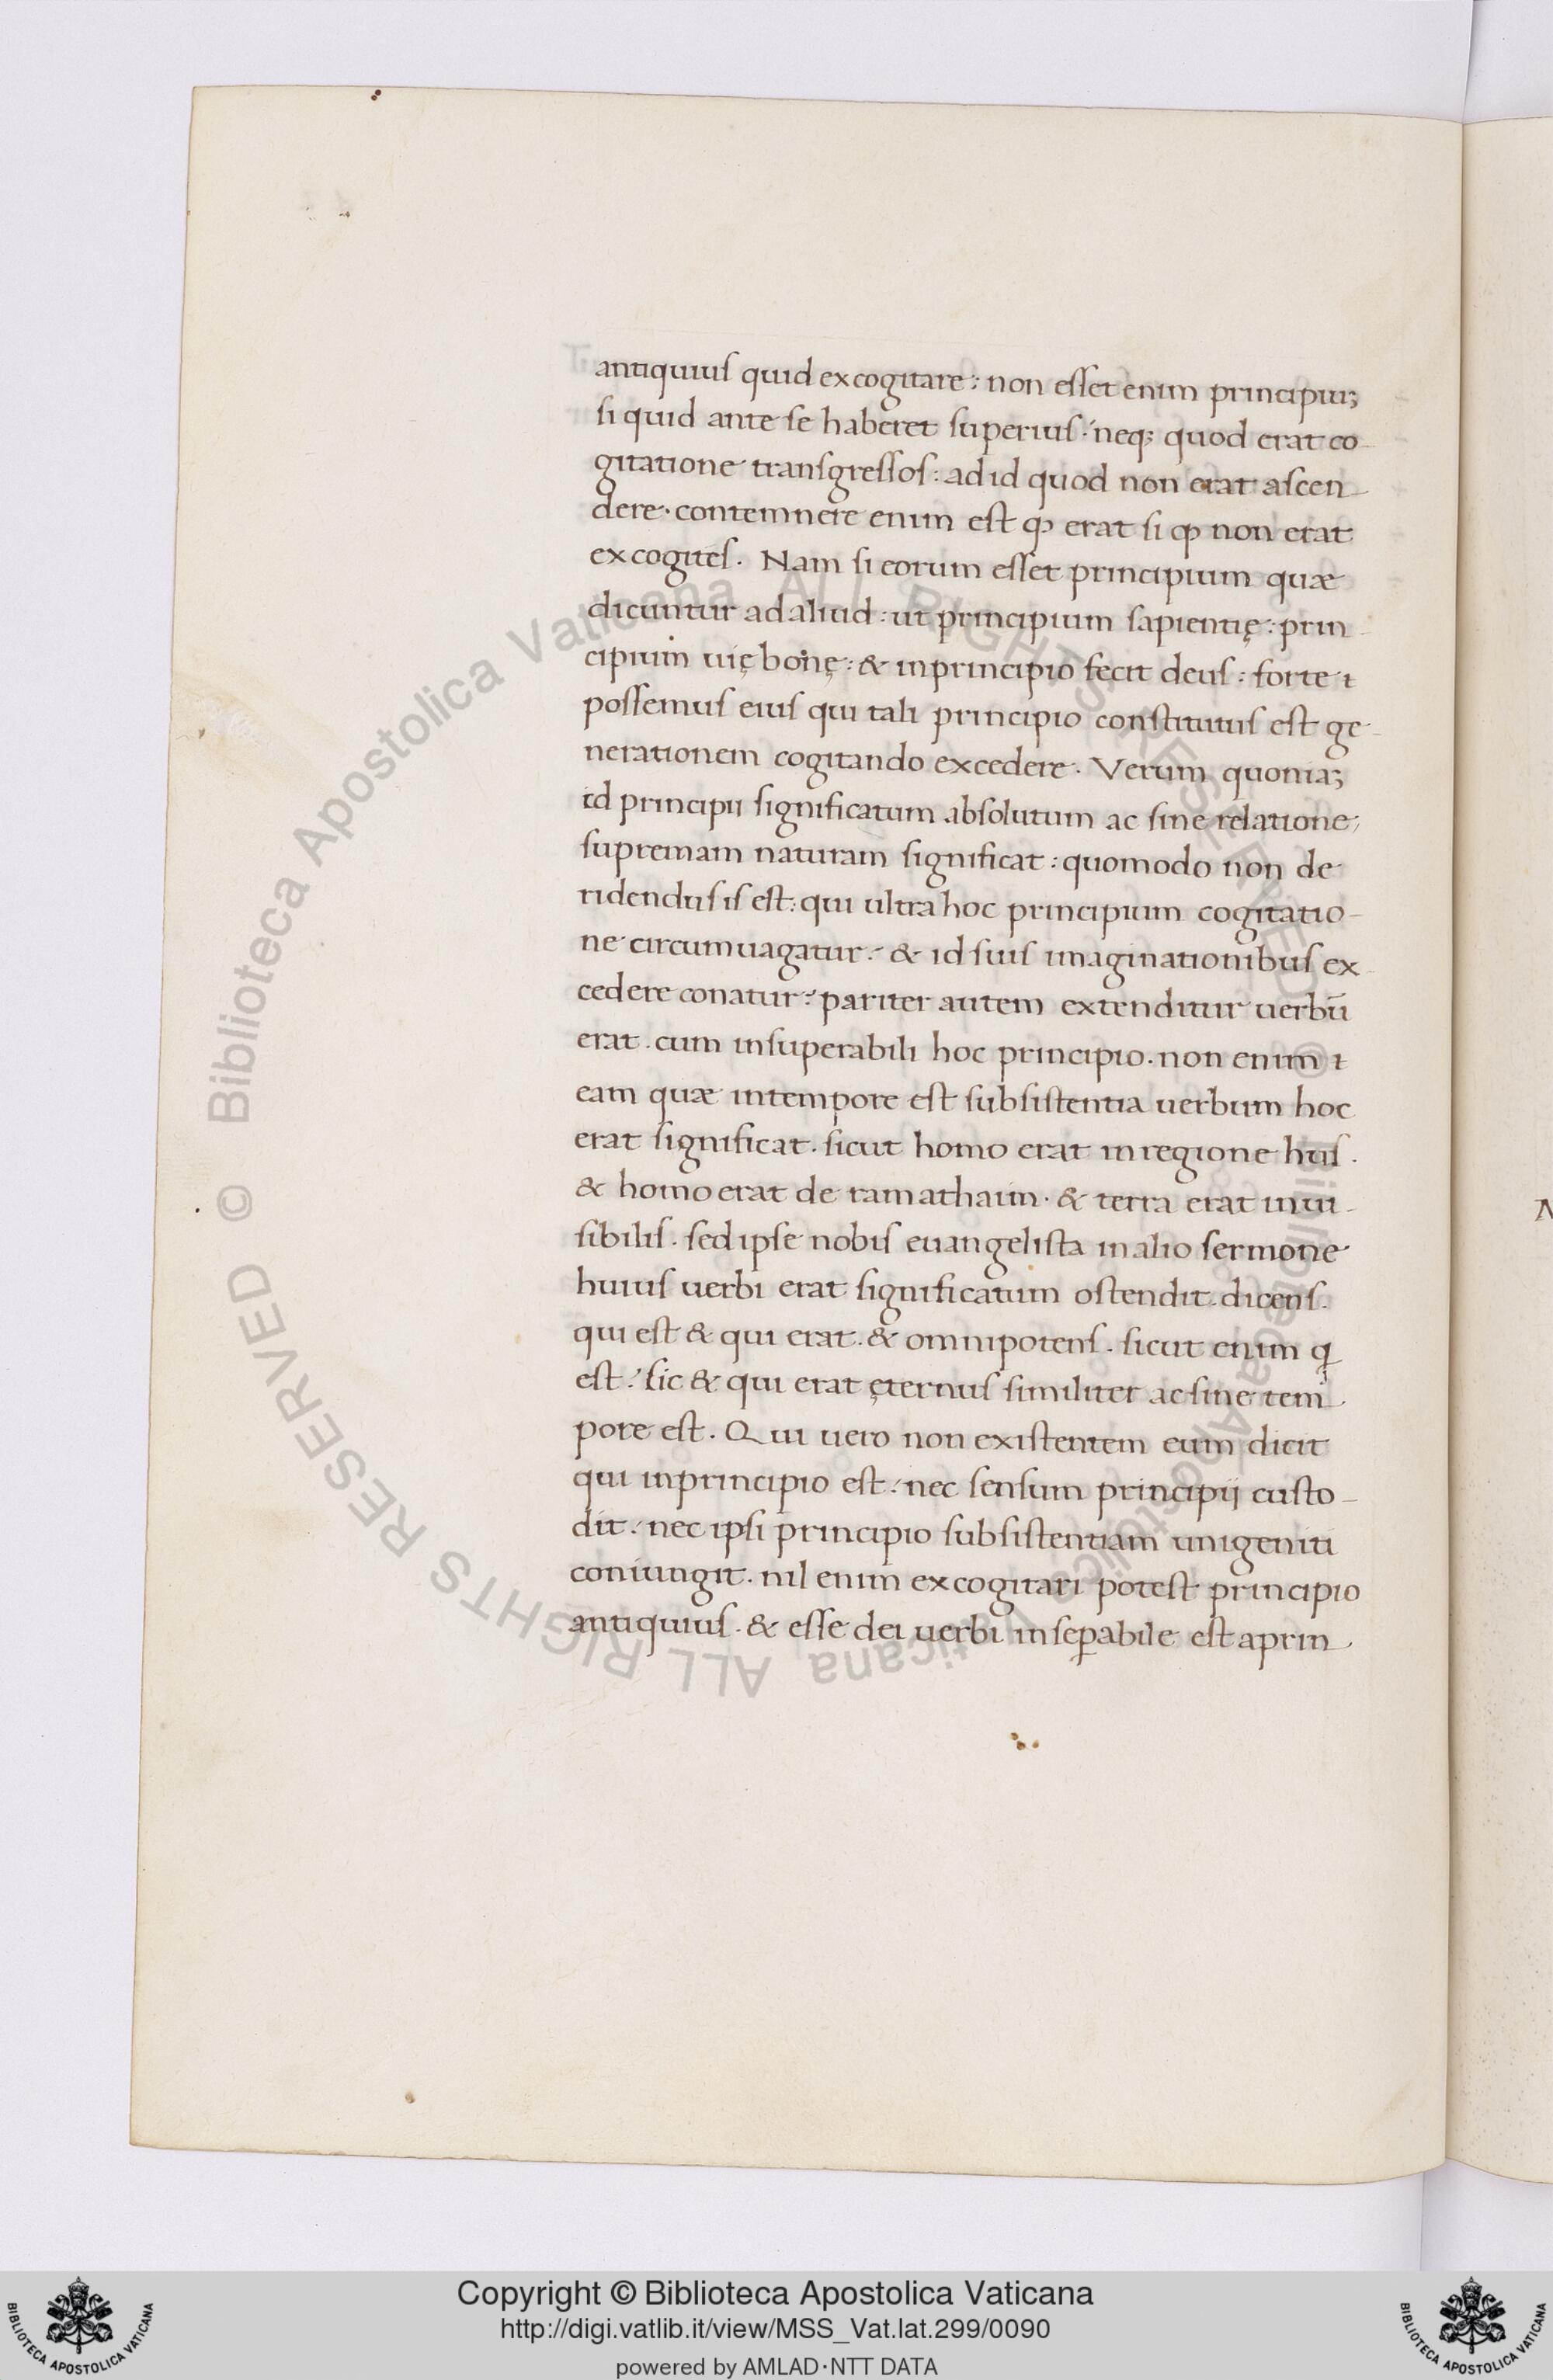 antiquius quid excogitare: non esset enim principiuʒ
si quid ante se haberet superius. neqꝫ quod erat co-
gitatione transgressos: ad id quod non erat ascen-
dere. contemnere enim est ꝙ erat si ꝙ non erat
excogites. Nam si eorum esset principium quæ
dicuntur ad aliud: ut principium sapientię: prin-
cipium uię bonę: & in principio fecit deus: forte &
possemus eius qui tali principio constitutus est ge-
nerationem cogitando excedere. Verum quoniaʒ
id principii significatum absolutum ac sine relatione
supremam naturam significat: quomodo non de
ridendus is est: qui ultra hoc principium cogitatio-
ne circumuagatur: & id suis imaginationibus ex-
cedere conatur: pariter autem extenditur uerbū
erat. cum insuperabili hoc principio. non enim &
eam quæ in tempore est subsistentia uerbum hoc
erat significat. sicut homo erat in regione hus.
& homo erat de ramathaim. & terra erat inui-
sibilis. sed ipse nobis euangelista in alio sermone
huius uerbi erat significatum ostendit. dicens.
qui est & qui erat. & omnipotens. sicut enim q
est: sic & qui erat ęternus similiter ac sine tem-
pore est. Qui uero non existentem eum dicit
qui in principio est: nec sensum principij custo-
dit: nec ipsi principio subsistentiam unigeniti
coniungit. nil enim excogitari potest principio
antiquius. & esse dei uerbi inseꝑabile est a prin-
Copyright © Biblioteca Apostolica Vaticana
http://digi.vatlib.it/view/MSS_Vat.lat.299/0090
powered by AMLAD·NTT DATA
BIBLIOTECA APOSTOLICA VATICANA
BIBLIOTECA APOSTOLICA VATICANA
© Biblioteca Apostolica Vaticana ALL RIGHTS RESERVED © Biblioteca Apostolica Vaticana ALL RIGHTS RESERVED